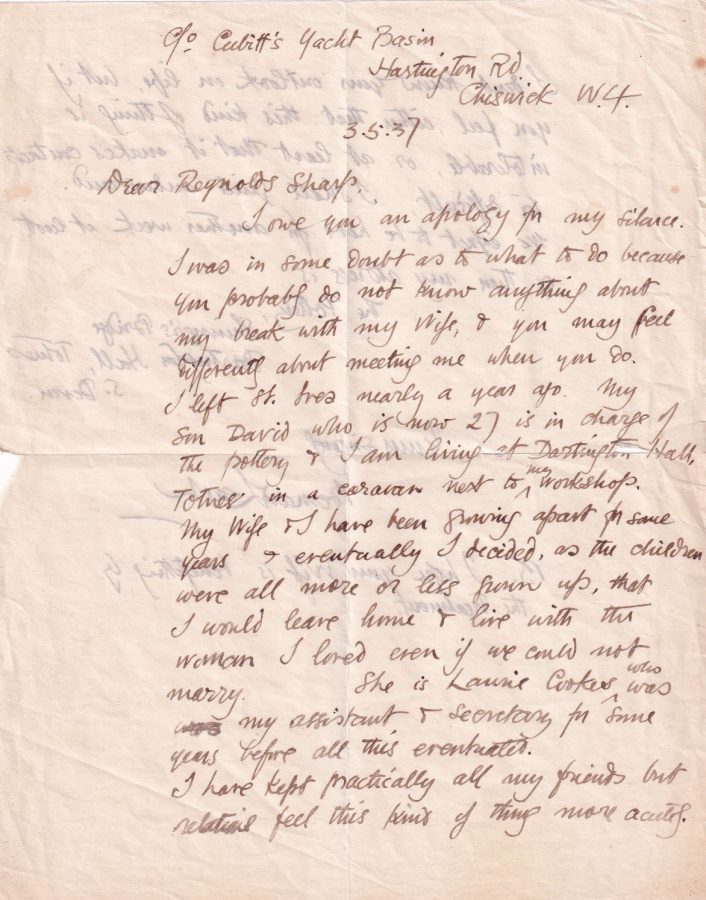 C/o Cubitt's Yacht Basin
Hartington Rd
Chiswick W.4.
3.5.37
Dear Reynolds Sharp,
I owe you an apology for my silence.
I was in some doubt as to what to do because
you probably do not know anything about
my break with my Wife, & you may feel
differently about meeting me when you do.
I left St. Ives nearly a year ago. My
son David who is now 27 is in charge of
the pottery & I am living at Dartington Hall,
Totnes in a caravan next to my workshop.
My Wife & I have been growing apart for some
years & eventually I decided, as the children
were all more or less grown up, that
I would leave home & live with the
woman I loved even if we could not
marry. She is Laurie Cookes who was
my assistant & secretary for some
years before all this eventuated.
I have kept practically all my friends but
relations feel this kind of thing more acutely.